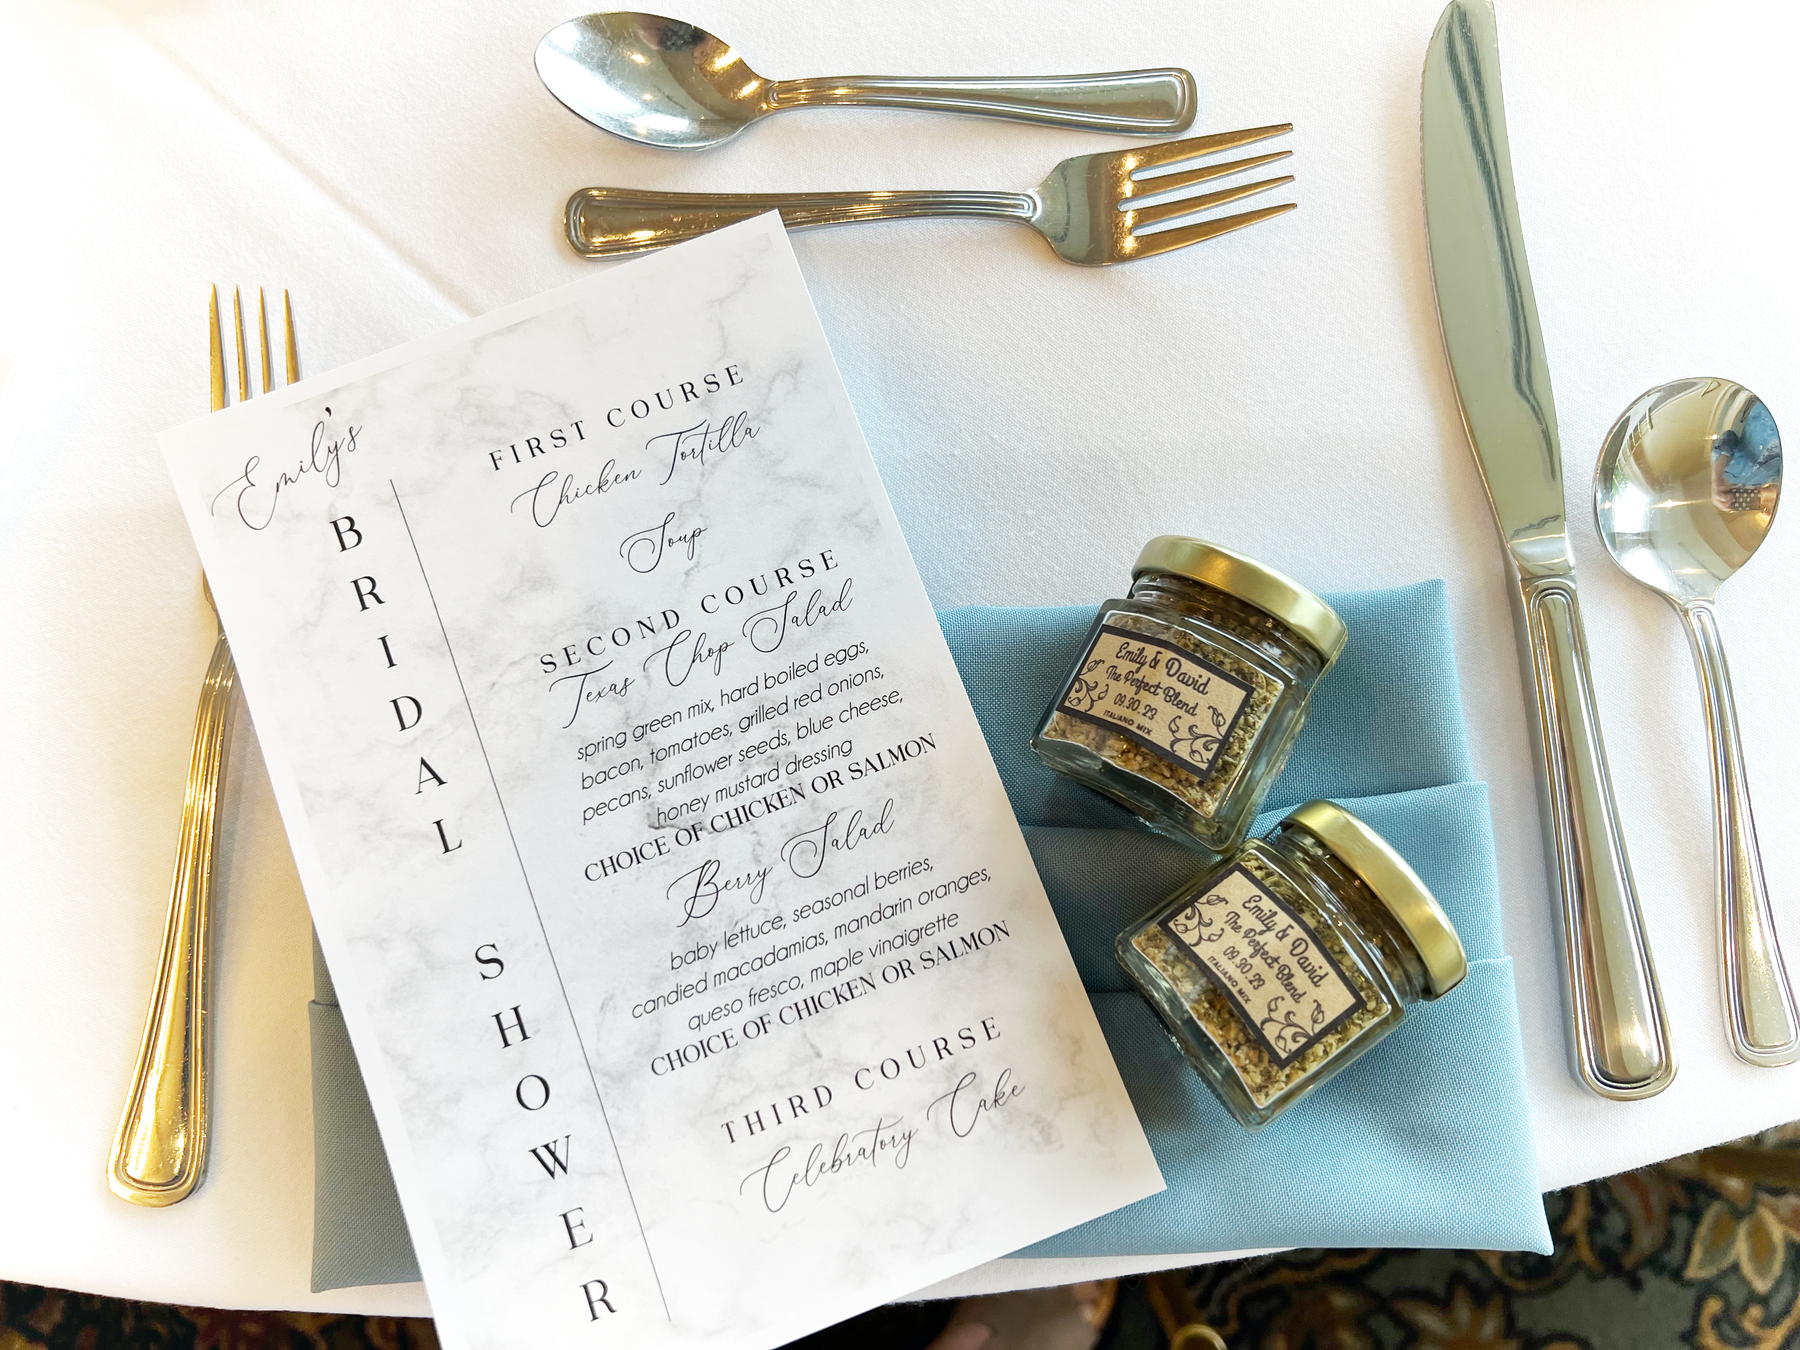 Emily's
BRIDAL SHOWER
FIRST COURSE
Chicken Tortilla
Soup
SECOND COURSE
Texas Chop Salad
spring green mix, hard boiled eggs,
bacon, tomatoes, grilled red onions,
pecans, sunflower seeds, blue cheese,
honey mustard dressing
CHOICE OF CHICKEN OR SALMON
Berry Salad
baby lettuce, seasonal berries,
candied macadamias, mandarin oranges,
queso fresco, maple vinaigrette
CHOICE OF CHICKEN OR SALMON
THIRD COURSE
Celebratory Cake
Emily & David
The Perfect Blend
09.30.23
ITALIANO MIX
Emily & David
The Perfect Blend
09.30.23
ITALIANO MIX